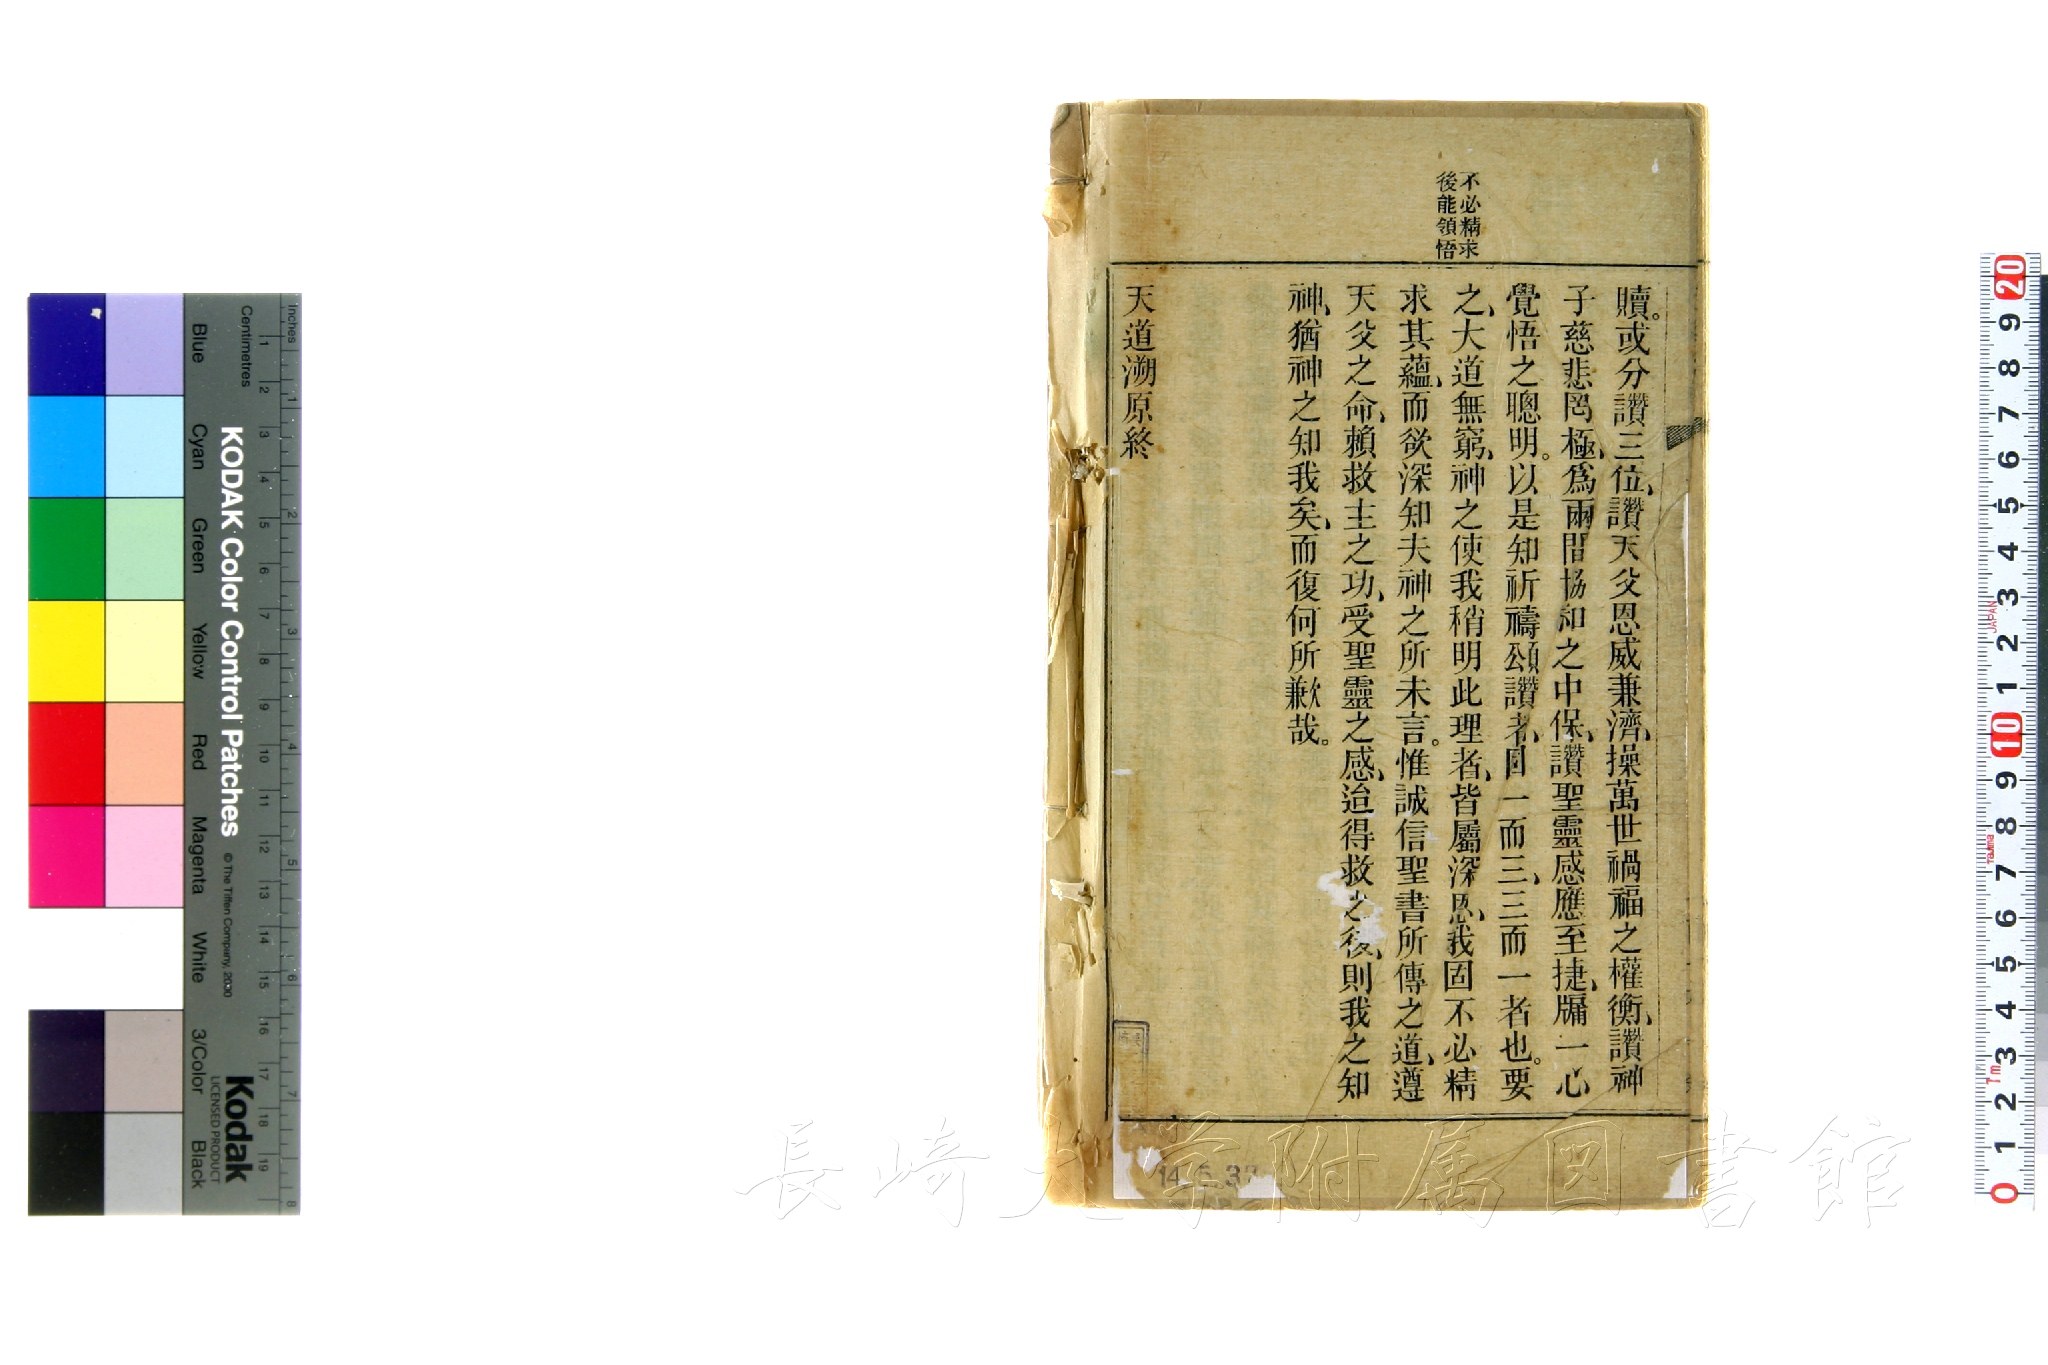 不必精求
後能領悟
贖。或分讚三位、讚天父恩威兼濟、操萬世禍福之權衡、讚神
子慈悲罔極、爲兩間協和之中保、讚聖靈感應至捷、牖一心
覺悟之聰明。以是知祈禱頌讚者、因一而三、三而一者也。要
之、大道無窮、神之使我稍明此理者、皆屬深恩、我固不必精
求其蘊、而欲深知夫神之所未言。惟誠信聖書所傳之道、遵
天父之命、賴救主之功、受聖靈之感、迨得救之後、則我之知
神、猶神之知我矣、而復何所歉哉。
天道溯原終
長崎大学附属図書館
KODAK Color Control Patches
© The Tiffen Company, 2000
Kodak
LICENSED PRODUCT
Inches
Centimetres
Blue
Cyan
Green
Yellow
Red
Magenta
White
3/Color
Black
1 2 3 4 5 6 7 8 9 10 11 12 13 14 15 16 17 18 19
1 2 3 4 5 6 7 8
20
9
8
7
6
5
4
3
2
1
10
9
8
7
6
5
4
3
2
1
0
JAPAN
Tajima
7m